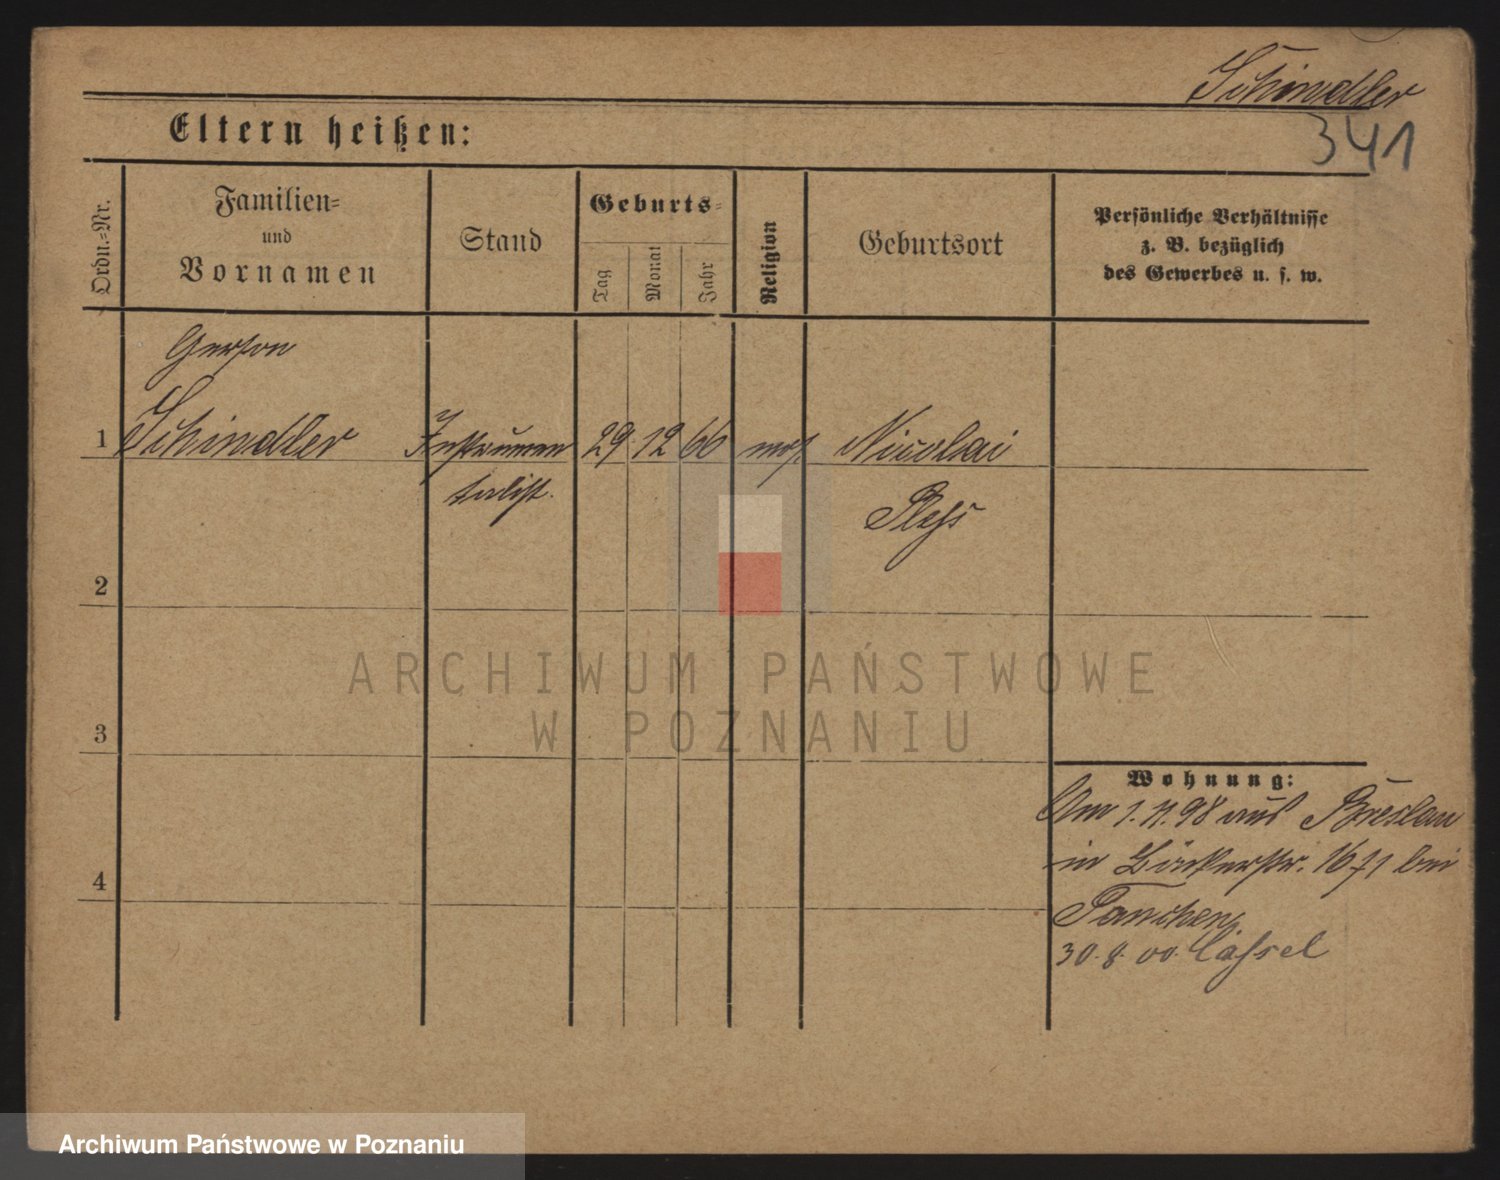 Schindler
341
Eltern heißen:
Ordn.-Nr.
Familien-
und
Vornamen
Stand
Geburts-
Tag
Monat
Jahr
Religion
Geburtsort
Persönliche Verhältnisse
z. B. bezüglich
des Gewerbes u. s. w.
Gerson
1 Schindler Instrumen 29 12 66 mos. Nicolai
talist. Pless
2
ARCHIWUM PAŃSTWOWE
W POZNANIU
3
Wohnung:
Am 1. 11. 98 aus Breslau
4 in Bäckerstr. 16 f1 bei
30. 8. 00. Cassel
Archiwum Państwowe w Poznaniu